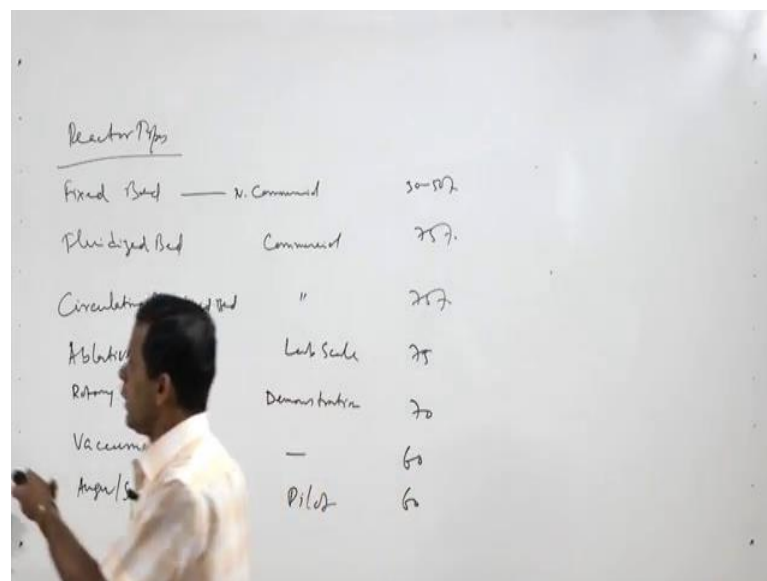 Reactor Types
Fixed Bed — N. Commercial 30-50%
Fluidized Bed Commercial 75%
Circulating Bed " 75%
Lab Scale 75
Rotary Demonstration 70
— 60
Auger/ Pilot 60